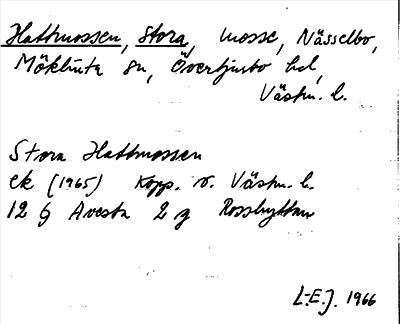 Hattmossen, Stora, mosse, Nässelbo,
Möklinta sn, Övertjurbo hd,
Västm. l.
Stora Hattmossen
ek (1965) Kopp. o. Västm. l.
12 G Avesta 2 g Rosshyttan
L-E.J. 1966